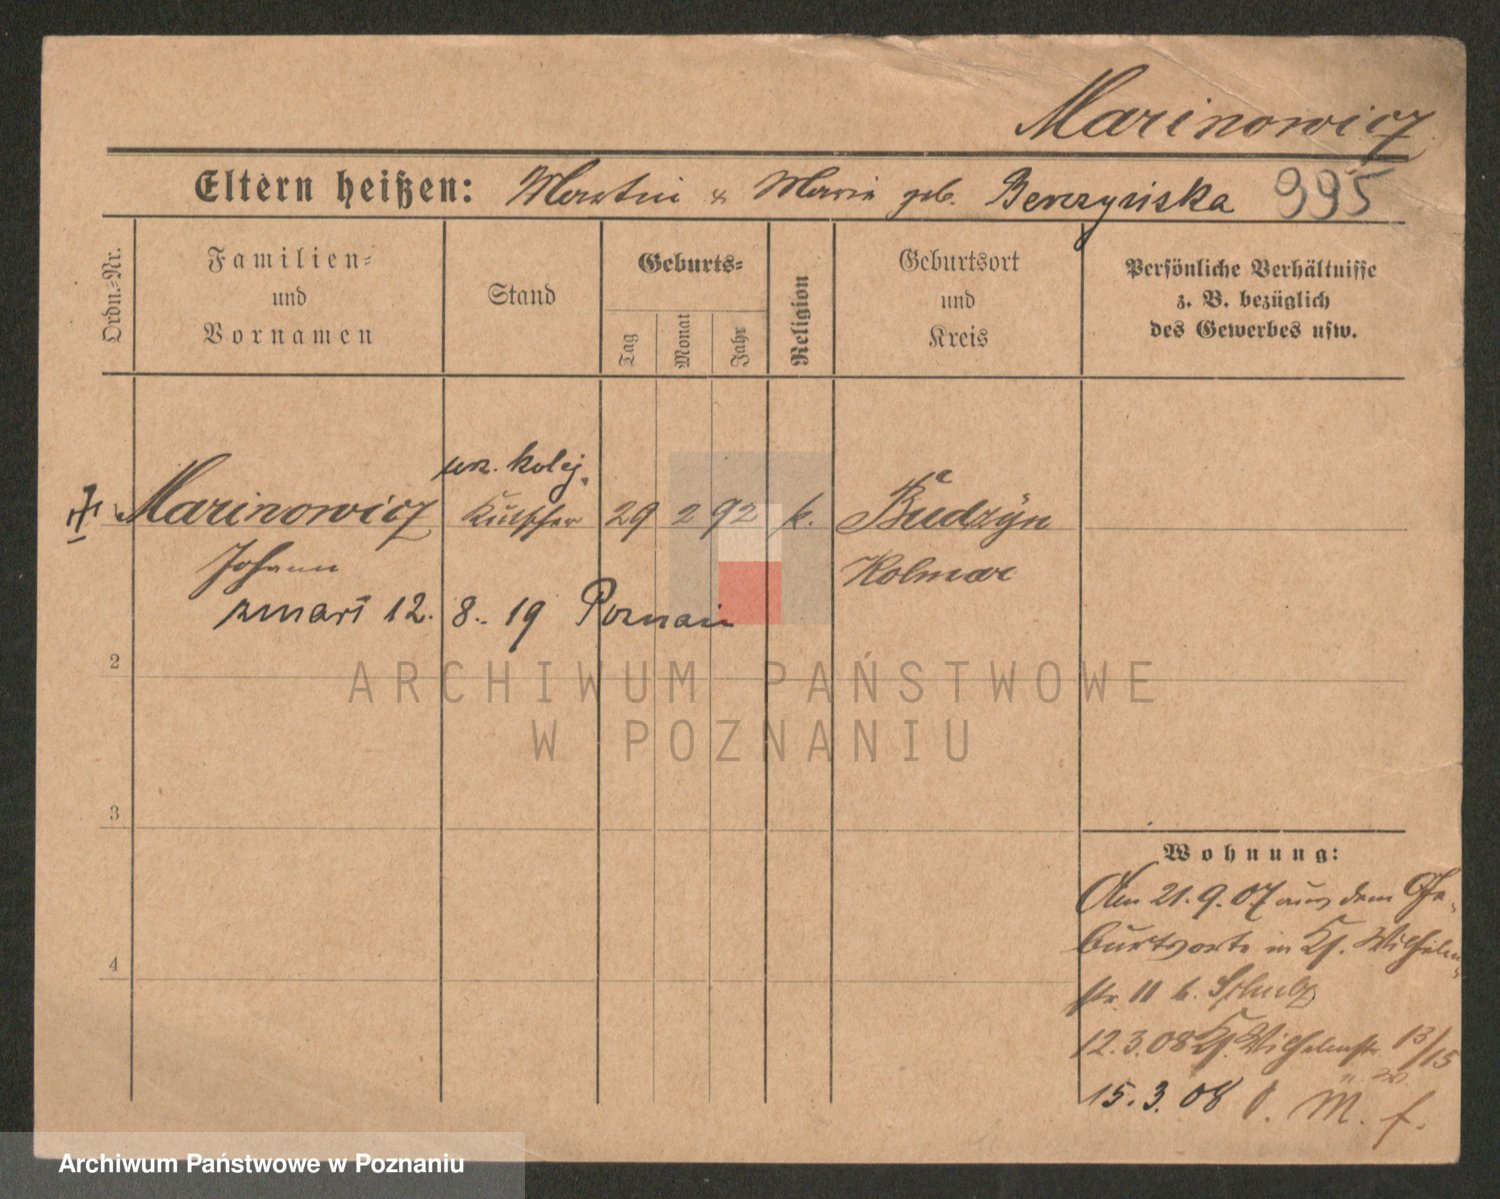 Marinowicz
Eltern heißen: Martin & Maria geb. Berczyńska 995
Ordn.-Nr.
Familien-
und
Vornamen
Stand
Geburts-
Tag
Monat
Jahr
Religion
Geburtsort
und
Kreis
Persönliche Verhältnisse
z. B. bezüglich
des Gewerbes usw.
urz. kolej.
Marinowicz Kutscher 29 2 92 k. Budzyn
Johann Kolmar
zmarł 12. 8. 19 Poznań
2
3
4
Wohnung:
Am 21.9.07 aus dem Ge-
burtsorte in Kl. Wilhelm-
str. 11 b. Schulz
12.3.08 Kl. Wilhelmstr. 13/15
15.3.08 M. f.
ARCHIWUM PAŃSTWOWE
W POZNANIU
Archiwum Państwowe w Poznaniu